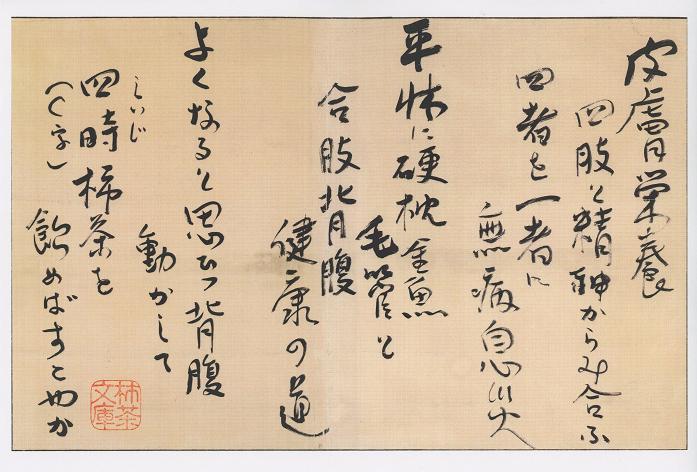 皮膚栄養
四肢と精神からみ合ふ
四者を一者に
無病息災
平牀に硬枕金魚
毛管と
合肢背腹
健康の道
よくなると思ひつ背腹
動かして
しいじ
四時柿茶を
飲めばすこやか
柿茶
文庫